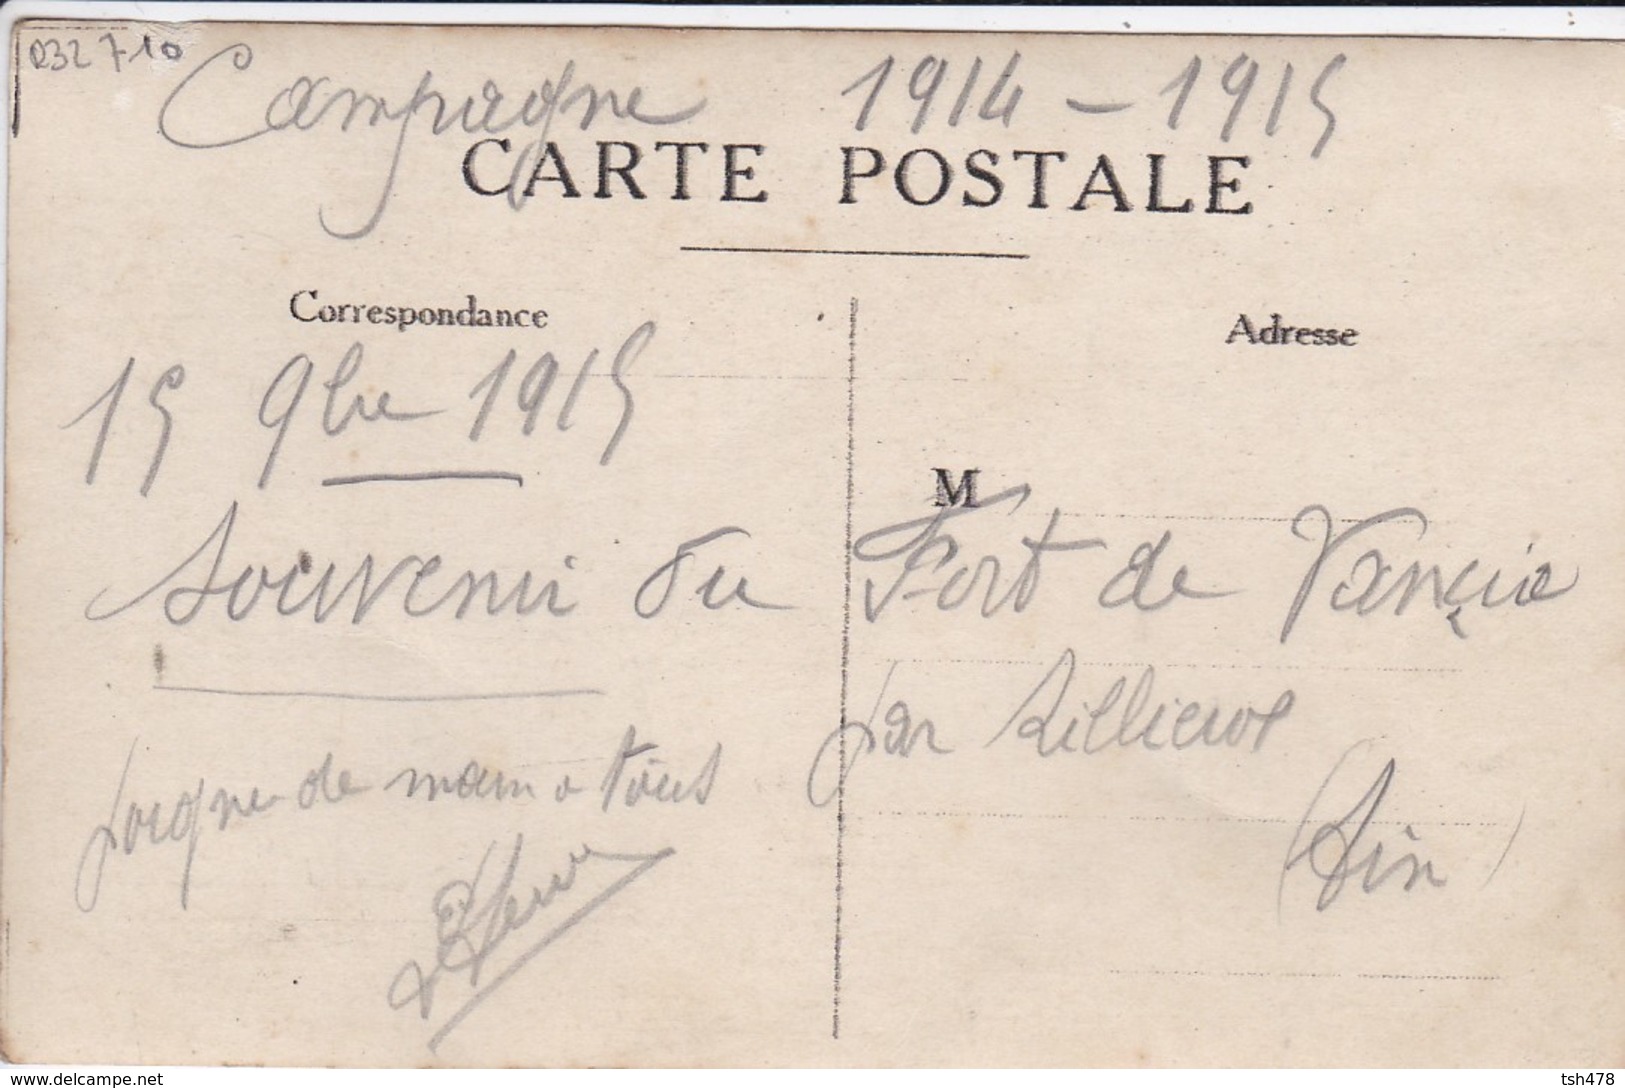 Q32 710
Campagne 1914-1915
CARTE POSTALE
Correspondance
Adresse
15 9bre 1915
M
Souvenir du Fort de Vancia
par Rillieux
poigne de main a tous
(Ain)
www.delcampe.net
tsh478